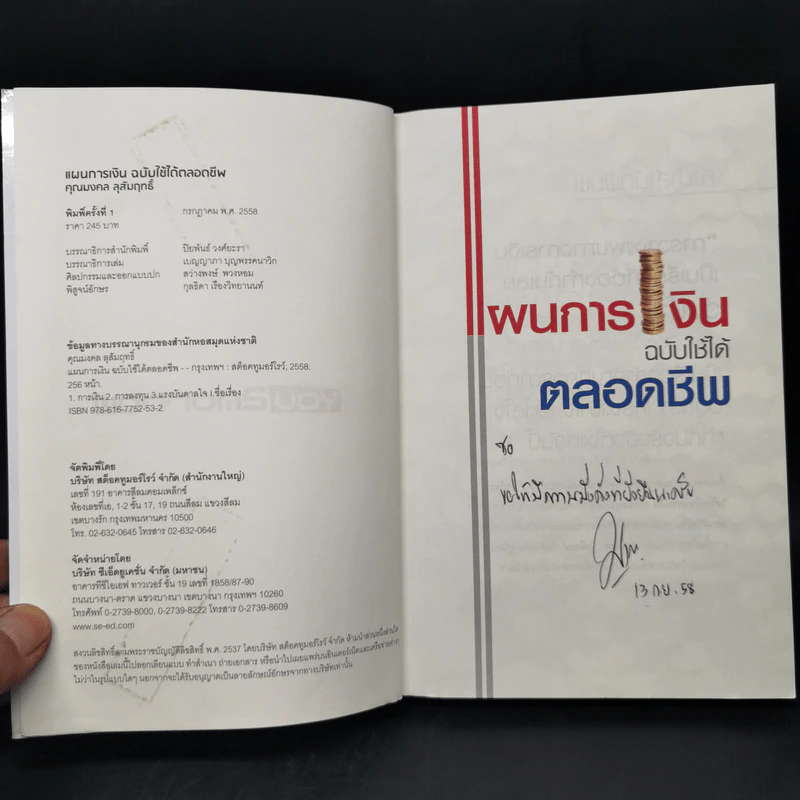 แผนการเงิน ฉบับใช้ได้ตลอดชีพ
คุณมงคล ลุสัมฤทธิ์
พิมพ์ครั้งที่ 1 กรกฎาคม พ.ศ. 2558
ราคา 245 บาท
บรรณาธิการสำนักพิมพ์ ปิยพันธ์ วงศ์ยะรา
บรรณาธิการเล่ม เบญญาภา บุญพรรคนาวิก
ศิลปกรรมและออกแบบปก สว่างพงษ์ พวงหอม
พิสูจน์อักษร กุลธิดา เรืองวิทยานนท์
ข้อมูลทางบรรณานุกรมของสำนักหอสมุดแห่งชาติ
คุณมงคล ลุสัมฤทธิ์
แผนการเงิน ฉบับใช้ได้ตลอดชีพ - - กรุงเทพฯ : สต็อคทูมอร์โรว์, 2558.
256 หน้า.
1. การเงิน 2. การลงทุน 3.แรงบันดาลใจ I.ชื่อเรื่อง
ISBN 978-616-7752-53-2
จัดพิมพ์โดย
บริษัท สต็อคทูมอร์โรว์ จำกัด (สำนักงานใหญ่)
เลขที่ 191 อาคารสีลมคอมเพล็กซ์
ห้องเลขที่เอ, 1-2 ชั้น 17, 19 ถนนสีลม แขวงสีลม
เขตบางรัก กรุงเทพมหานคร 10500
โทร. 02-632-0645 โทรสาร 02-632-0646
จัดจำหน่ายโดย
บริษัท ซีเอ็ดยูเคชั่น จำกัด (มหาชน)
อาคารทีซีไอเอฟ ทาวเวอร์ ชั้น 19 เลขที่ 1858/87-90
ถนนบางนา-ตราด แขวงบางนา เขตบางนา กรุงเทพฯ 10260
โทรศัพท์ 0-2739-8000, 0-2739-8222 โทรสาร 0-2739-8609
www.se-ed.com
สงวนลิขสิทธิ์ตามพระราชบัญญัติลิขสิทธิ์ พ.ศ. 2537 โดยบริษัท สต็อคทูมอร์โรว์ จำกัด ห้ามนำส่วนหนึ่งส่วนใด
ของหนังสือเล่มนี้ไปลอกเลียนแบบ ทำสำเนา ถ่ายเอกสาร หรือนำไปเผยแพร่บนอินเตอร์เน็ตและเครือข่ายต่างๆ
ไม่ว่าในรูปแบบใดๆ นอกจากจะได้รับอนุญาตเป็นลายลักษณ์อักษรจากทางบริษัทเท่านั้น
แผนการเงิน
ฉบับใช้ได้
ตลอดชีพ
ขอให้มีความมั่งคั่งที่ยั่งยืนนะครับ
13 ก.ย. 58